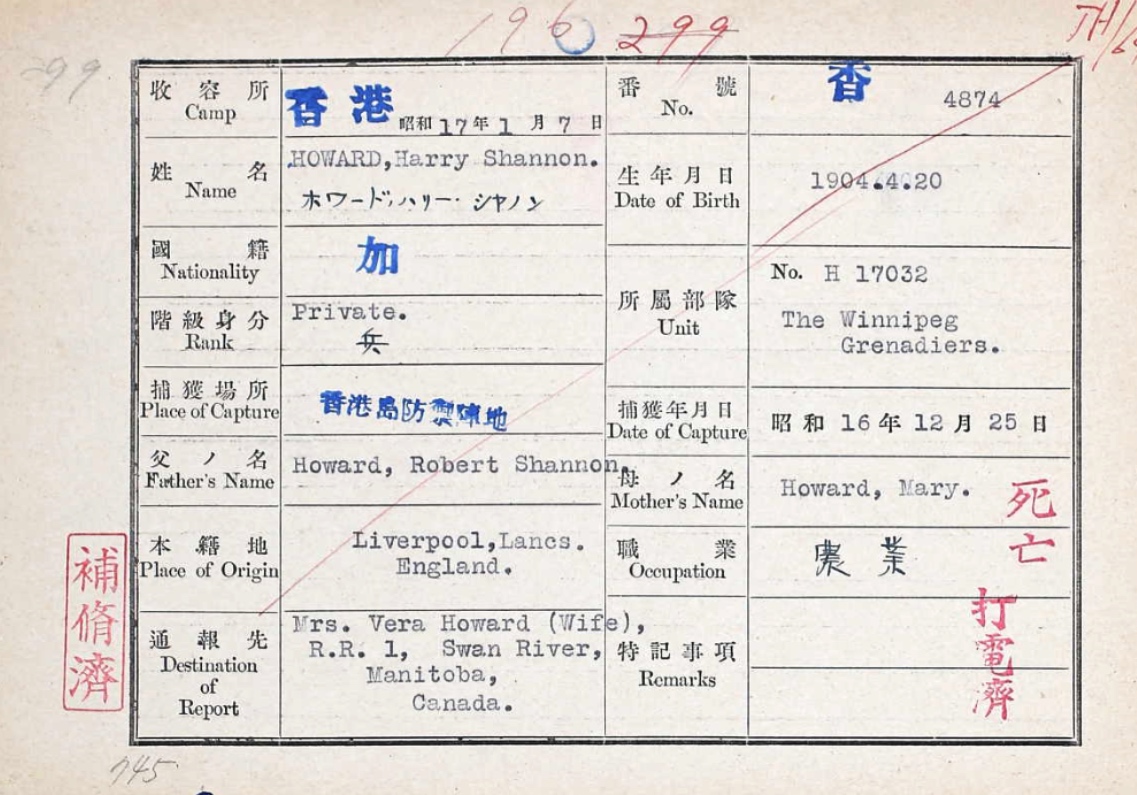 196 299
299
收容所
Camp
香港
昭和17年1月7日
番號
No.
香 4874
姓名
Name
HOWARD,Harry Shannon.
ホワード,ハリー・シヤノン
生年月日
Date of Birth
1904.4.20
國籍
Nationality
加
所屬部隊
Unit
No. H 17032
The Winnipeg
Grenadiers.
階級身分
Rank
Private.
兵
捕獲場所
Place of Capture
香港島防禦陣地
捕獲年月日
Date of Capture
昭和16年12月25日
父ノ名
Father's Name
Howard, Robert Shannon.
母ノ名
Mother's Name
Howard, Mary.
本籍地
Place of Origin
Liverpool,Lancs.
England.
職業
Occupation
農業
通報先
Destination
of
Report
Mrs. Vera Howard (Wife),
R.R. 1, Swan River,
Manitoba,
Canada.
特記事項
Remarks
死亡
打電濟
補脩濟